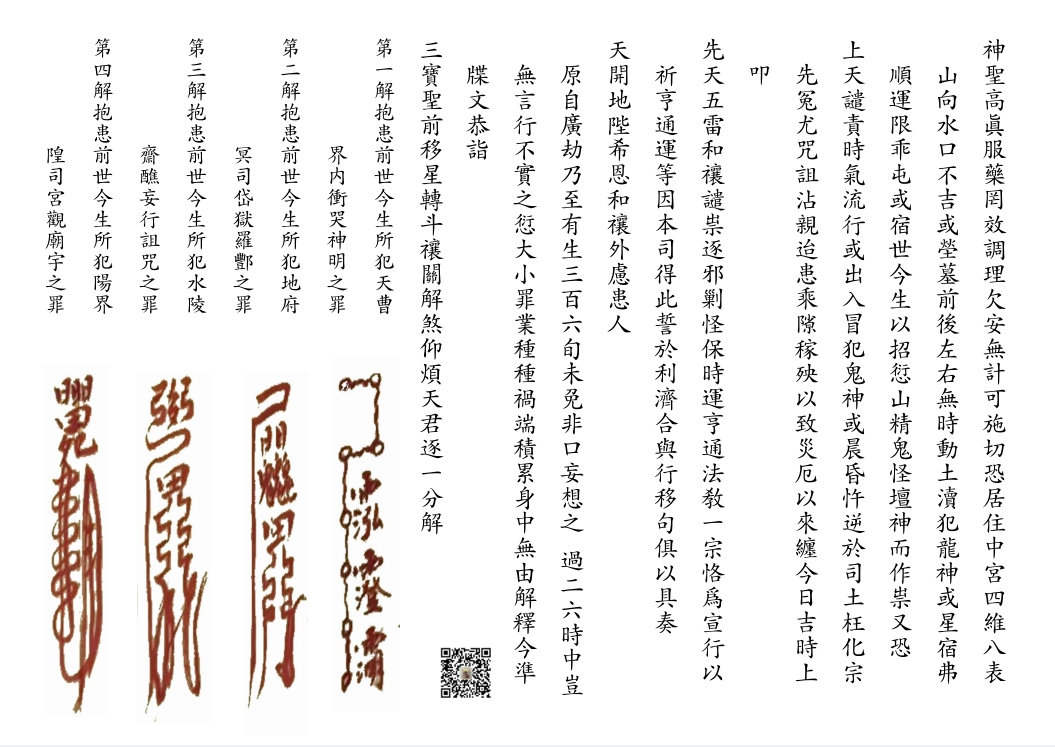 神聖高眞服藥罔效調理欠安無計可施切恐居住中宮四維八表
山向水口不吉或塋墓前後左右無時動土瀆犯龍神或星宿弗
順運限乖屯或宿世今生以招愆山精鬼怪壇神而作祟又恐
上天譴責時氣流行或出入冒犯鬼神或晨昏忤逆於司土枉化宗
先冤尤咒詛沾親迨患乘隙稼殃以致災厄以來纏今日吉時上
叩
先天五雷和禳譴祟逐邪剿怪保時運亨通法教一宗恪爲宣行以
祈亨通運等因本司得此誓於利濟合與行移句俱以具奏
天開地陛希恩和禳外慮患人
原自廣劫乃至有生三百六旬未免非口妄想之 過二六時中豈
無言行不實之愆大小罪業種種禍端積累身中無由解釋今準
牒文恭詣
三寶聖前移星轉斗禳關解煞仰煩天君逐一分解
第一解抱患前世今生所犯天曹
界內衝哭神明之罪
第二解抱患前世今生所犯地府
冥司岱獄羅酆之罪
第三解抱患前世今生所犯水陵
齋醮妄行詛咒之罪
第四解抱患前世今生所犯陽界
隍司宮觀廟宇之罪